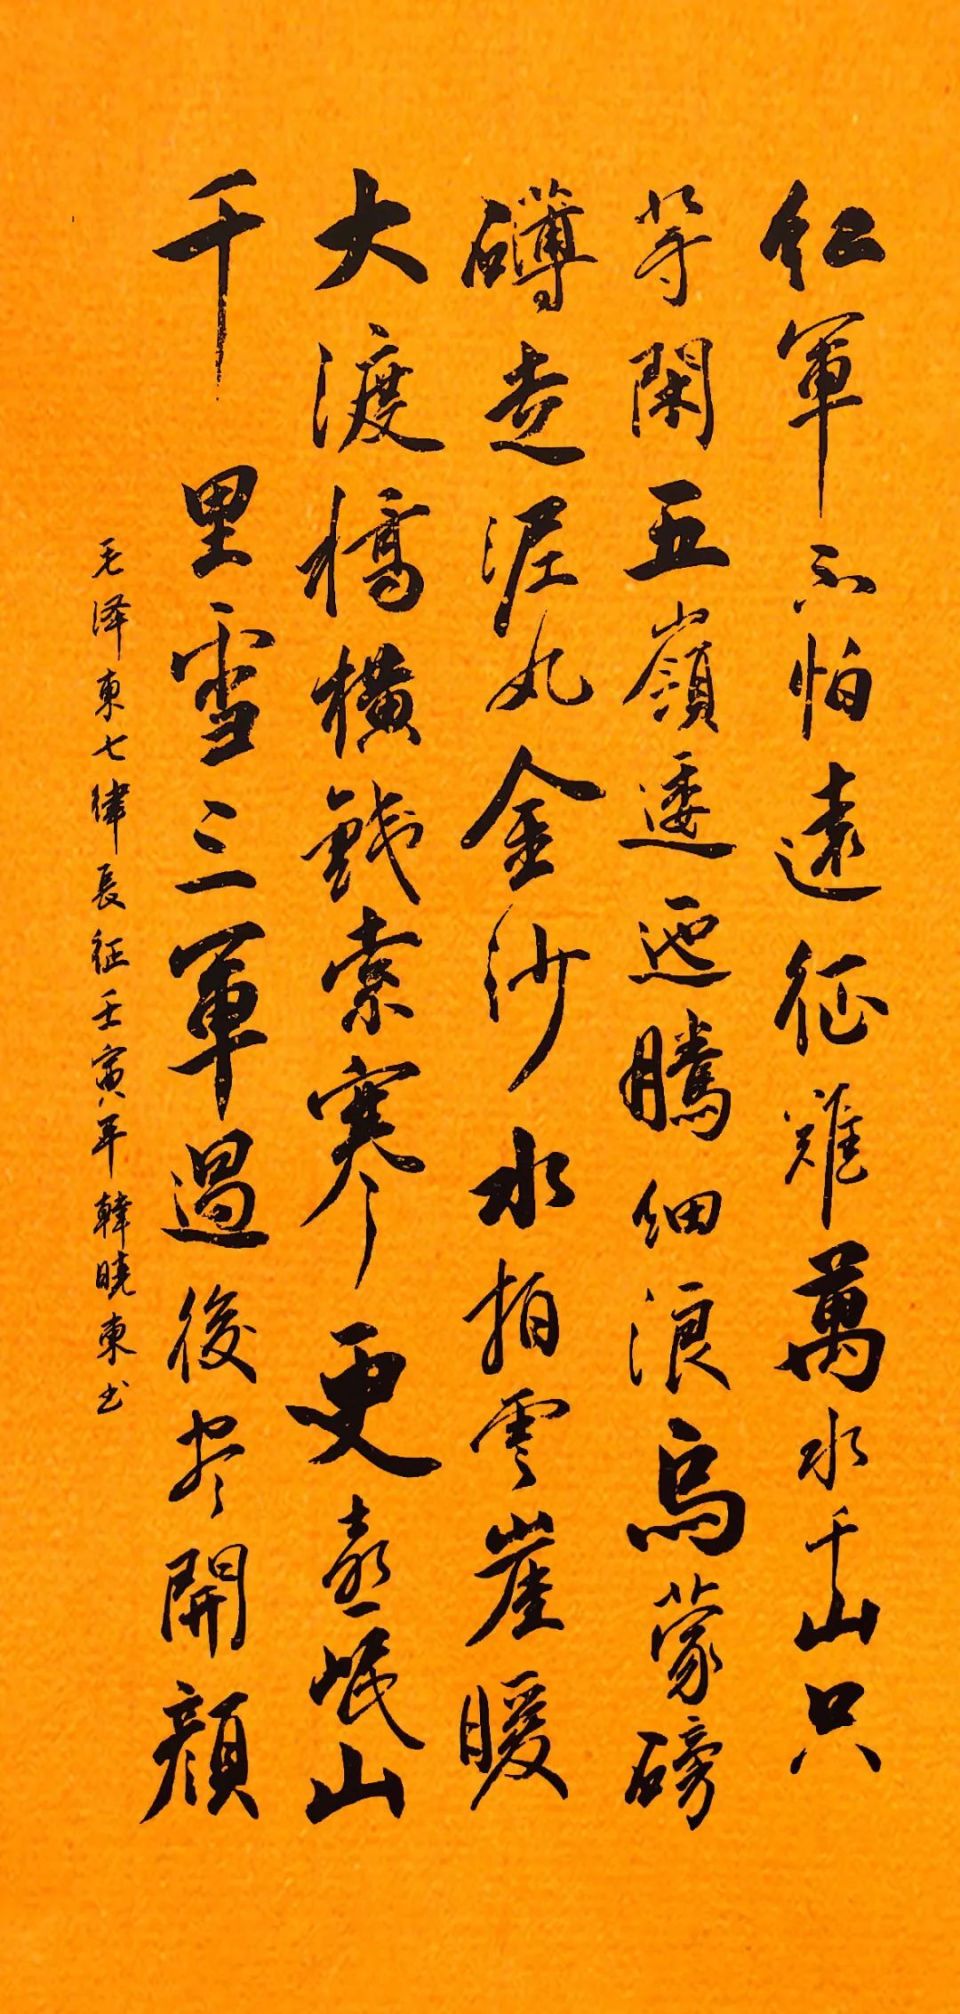 红軍不怕遠征難萬水千山只
等閑五嶺逶迤騰細浪烏蒙磅
礴走泥丸金沙水拍雲崖暖
大渡橋橫鐵索寒更喜岷山
千里雪三軍過後尽開顔
毛泽東七律長征壬寅年韓曉東书